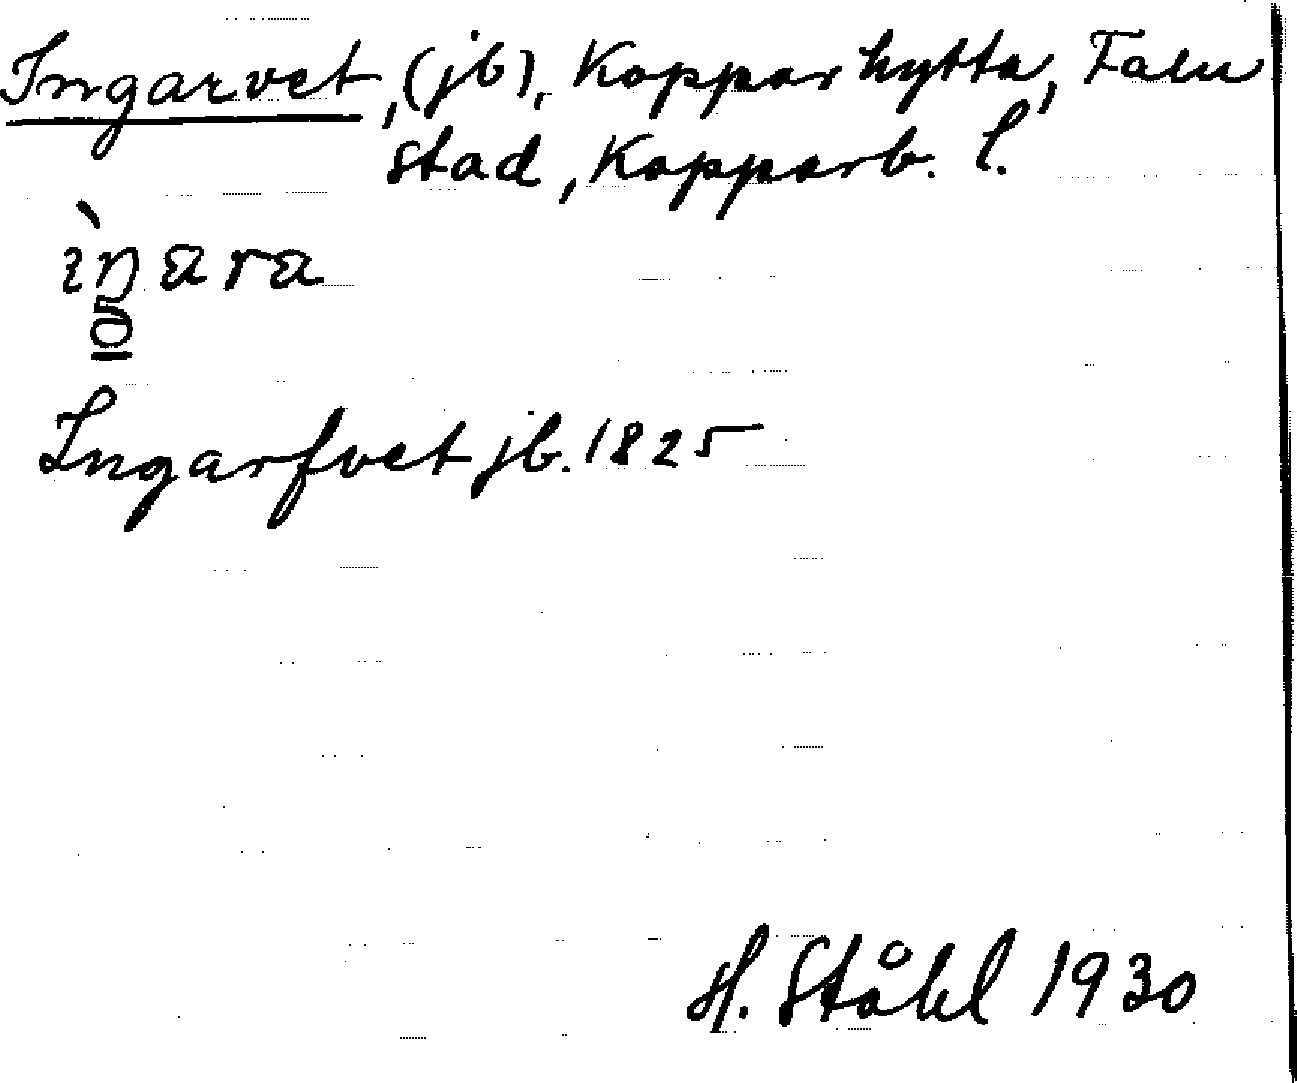 Ingarvet, (jb), Kopparhytta, Falu
stad, Kopparb. l.
ìŋara
Ingarfvet jb. 1825
H. Ståhl 1930